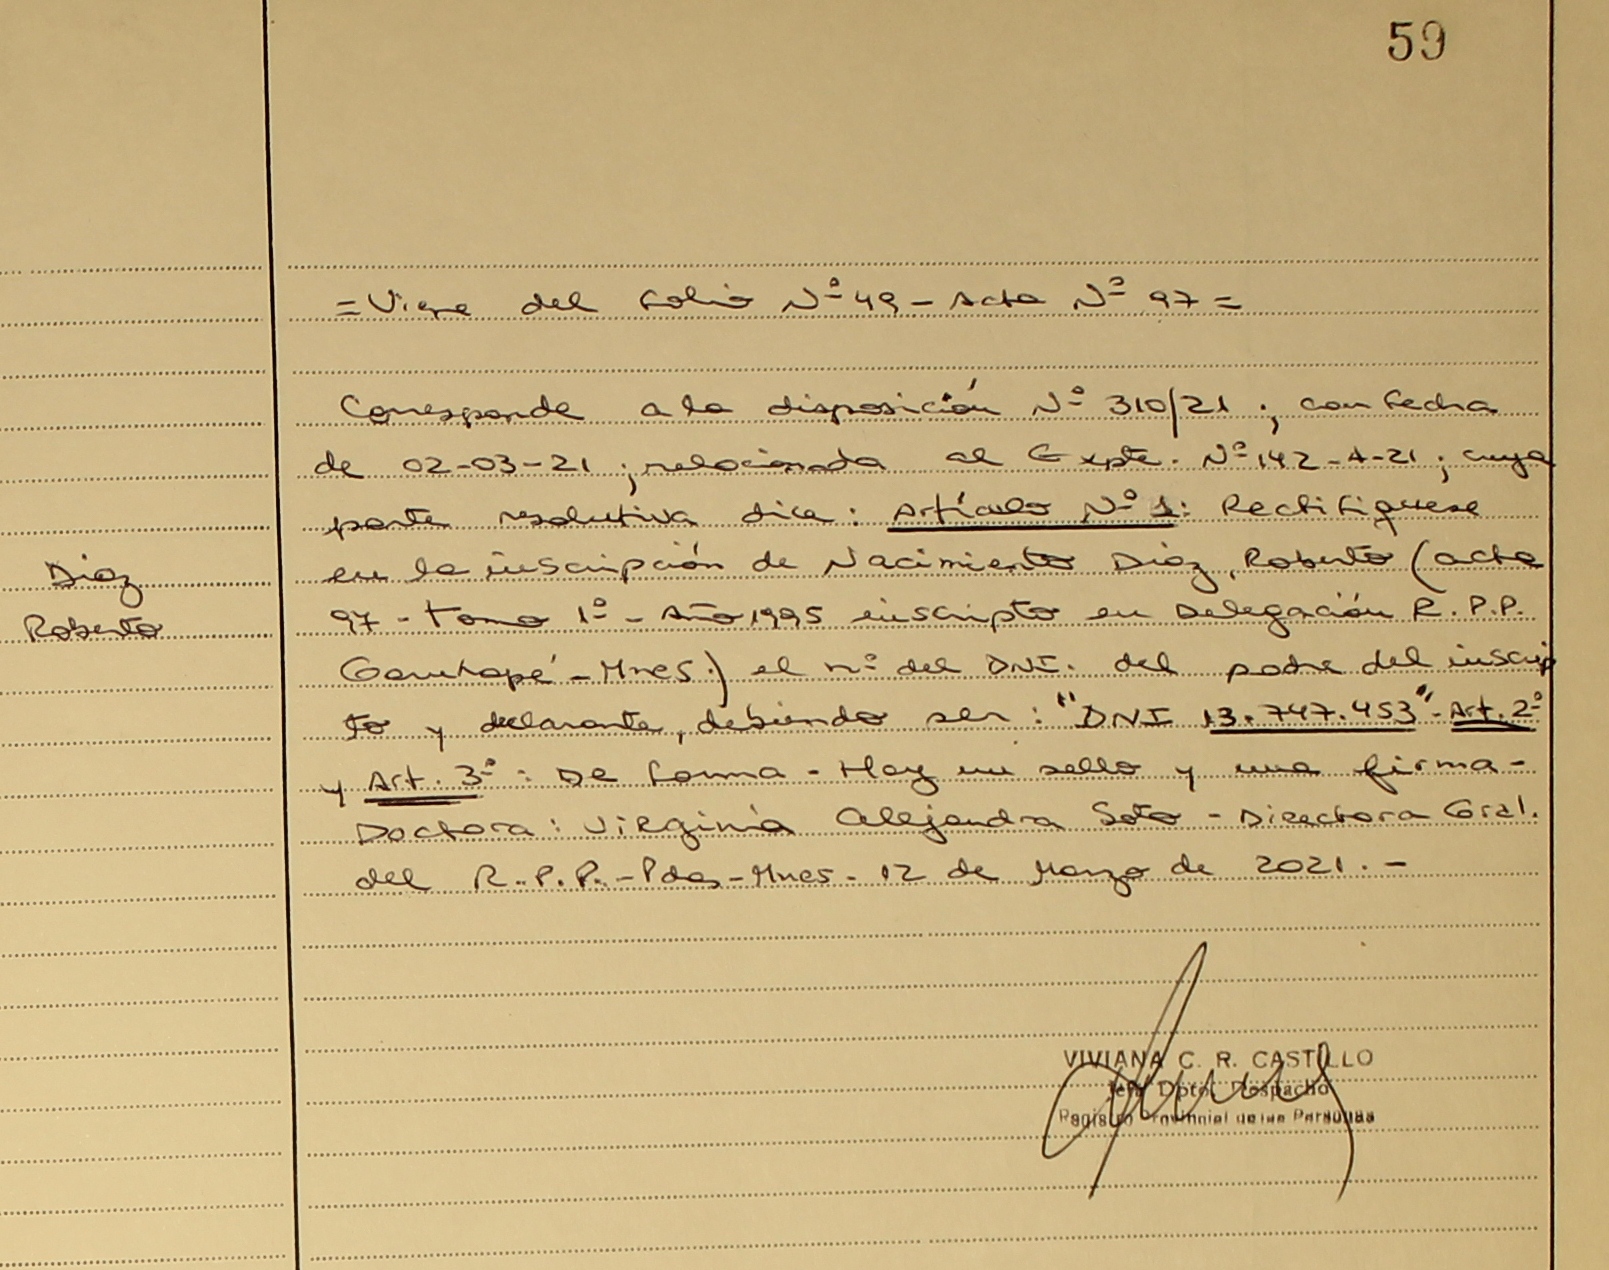 59
=Viene del folio Nº 49 - Acta Nº 97 =
Corresponde a la disposición Nº 310/21 ; con fecha
de 02-03-21 ; relacionada al Expte. Nº 142-A-21 ; cuya
parte resolutiva dice : Artículo Nº 1 : Rectifiquese
en la inscripción de Nacimiento Diaz, Roberto (acta
Diaz
97 - Tomo 1º - Año 1995 inscripto en Delegación R.P.P.
Roberto
Garuhapé - Mnes.) el nº del DNI. del padre del inscrip
to y declarante, debiendo ser : "DNI 13.747.453" - Art. 2º
y Art. 3º : De forma - Hay un sello y una firma -
Doctora : Virginia Alejandra Soto - Directora Gral.
del R.P.P. - Pdas - Mnes - 12 de Marzo de 2021. -
VIVIANA C. R. CASTILLO
Jefa Dpto. Despacho
Registro Provincial de las Personas